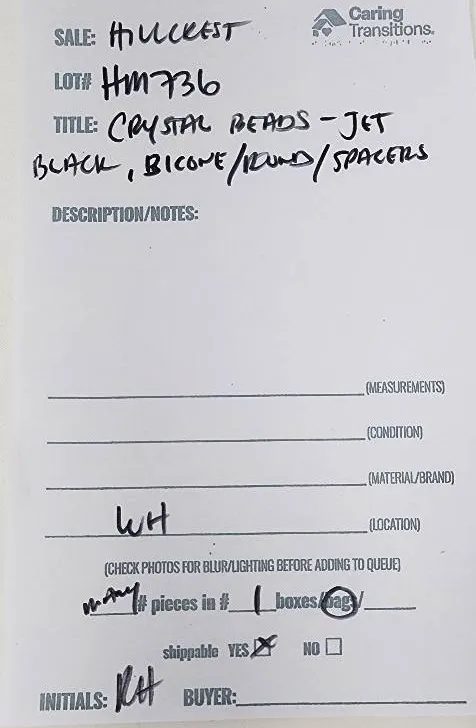 Caring
Transitions.
SALE: HILLCREST
LOT# HM736
TITLE: CRYSTAL BEADS - JET
BLACK, BICONE/ROUND/SPACERS
DESCRIPTION/NOTES:
(MEASUREMENTS)
(CONDITION)
(MATERIAL/BRAND)
WH (LOCATION)
(CHECK PHOTOS FOR BLUR/LIGHTING BEFORE ADDING TO QUEUE)
many # pieces in # 1 boxes/bag/
shippable YES ☒ NO ☐
INITIALS: RH BUYER: